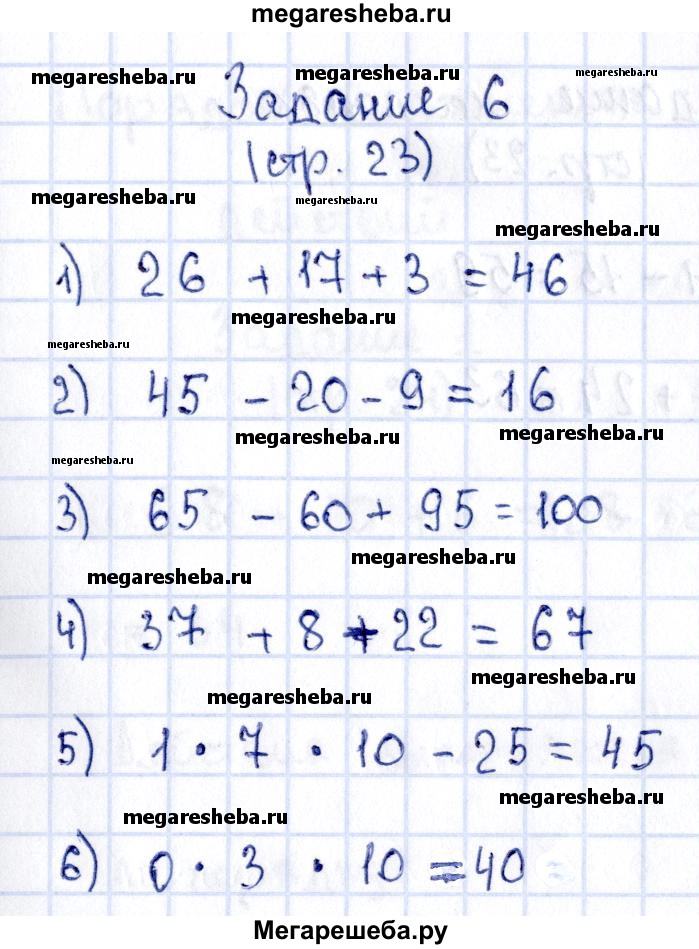 megaresheba.ru
megaresheba.ru megaresheba.ru megaresheba.ru
Задание 6
(стр. 23)
megaresheba.ru megaresheba.ru
megaresheba.ru
1) 26 + 17 + 3 = 46
megaresheba.ru
megaresheba.ru
2) 45 - 20 - 9 = 16
megaresheba.ru megaresheba.ru
megaresheba.ru
3) 65 - 60 + 95 = 100
megaresheba.ru
megaresheba.ru
4) 37 + 8 + 22 = 67
megaresheba.ru
megaresheba.ru
5) 1 · 7 · 10 - 25 = 45
megaresheba.ru
megaresheba.ru
6) 0 · 3 · 10 = 40
Мегарешеба.ру